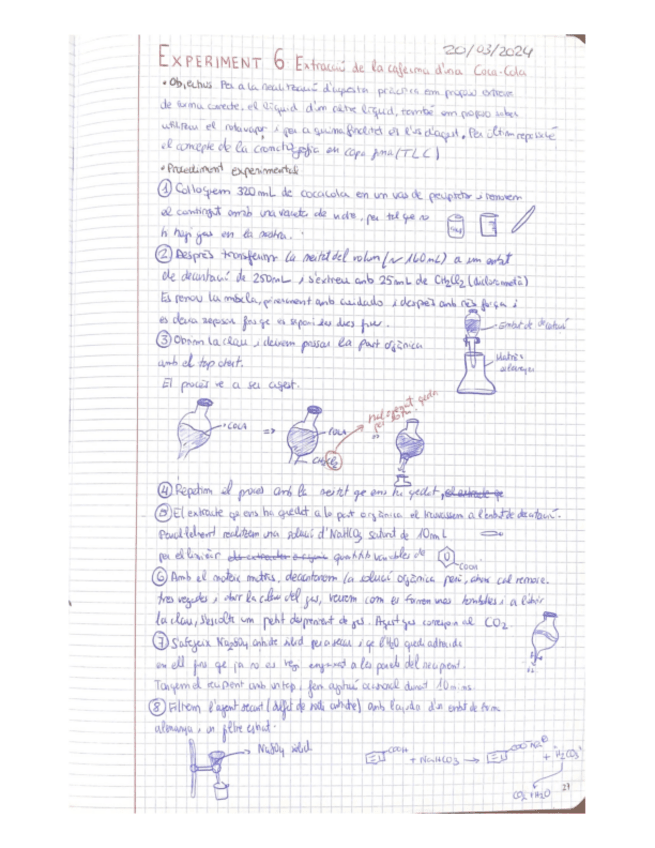 20/03/2024
EXPERIMENT 6 Extracció de la cafeïna d'una Coca-Cola
• Objectius Per a la realització d'aquesta pràctica ens proposen extreure
de forma correcte, el líquid d'un altre líquid, també ens proposen saber
utilitzar el rotavapor i per a quina finalitat és l'ús d'aquest. Per últim repassaré
el concepte de la cromatografia en capa fina (TLC)
• Procediment experimental
① Col·loquem 320 mL de cocacola en un vas de precipitats i removem
el contingut amb una vareta de vidre, per tal que no
hi hagi gas en la mostra.
② Després transferim la meitat del volum (~ 160 mL) a un embut
de decantació de 250mL i s'extreu amb 25mL de CH₂Cl₂ (diclorometà)
Es remou la mescla, primerament amb cuidado i després amb més força i
es deixa reposar fins que es separin les dues fases.
embut de decantació
③ Obrim la clau i deixem passar la part orgànica
matràs
erlenmeyer
amb el tap obert.
El procés ve a ser aquest.
COCA
=>
COCA
CH₂Cl₂
=>
④ Repetim el procés amb la meitat que ens ha quedat,
⑤ El extracte que ens ha quedat a la part orgànica el traspassem a l'embut de decantació.
Paral·lelament realitzem una solució d'NaHCO₃ saturat de 10 mL
per eliminar quantitats variables de
COOH
⑥ Amb el mateix matràs, decantarem la solució orgànica però, abans cal remoure
tres vegades i obrir la clau del gas, veurem com es formen unes bombolles i a l'obrir
la clau, s'escolta un petit despreniment de gas. Aquest gas correspon al CO₂
⑦ S'afegeix Na₂SO₄ anhidre sòlid per assecar i que l'H₂O quedi adherida
en ell fins que ja no es vegi enganxat a les parets del recipient.
Tanquem el recipient amb un tap i fem agitació ocasional durant 10 mins.
⑧ Filtrem l'agent secant (sulfat de sodi anhidre) amb l'ajuda d'un embut de forma
alemanya i un filtre estriat.
Na₂SO₄ sòlid
COOH + NaHCO₃ → COO⁻Na⊕ + "H₂CO₃"
CO₂ + H₂O
27